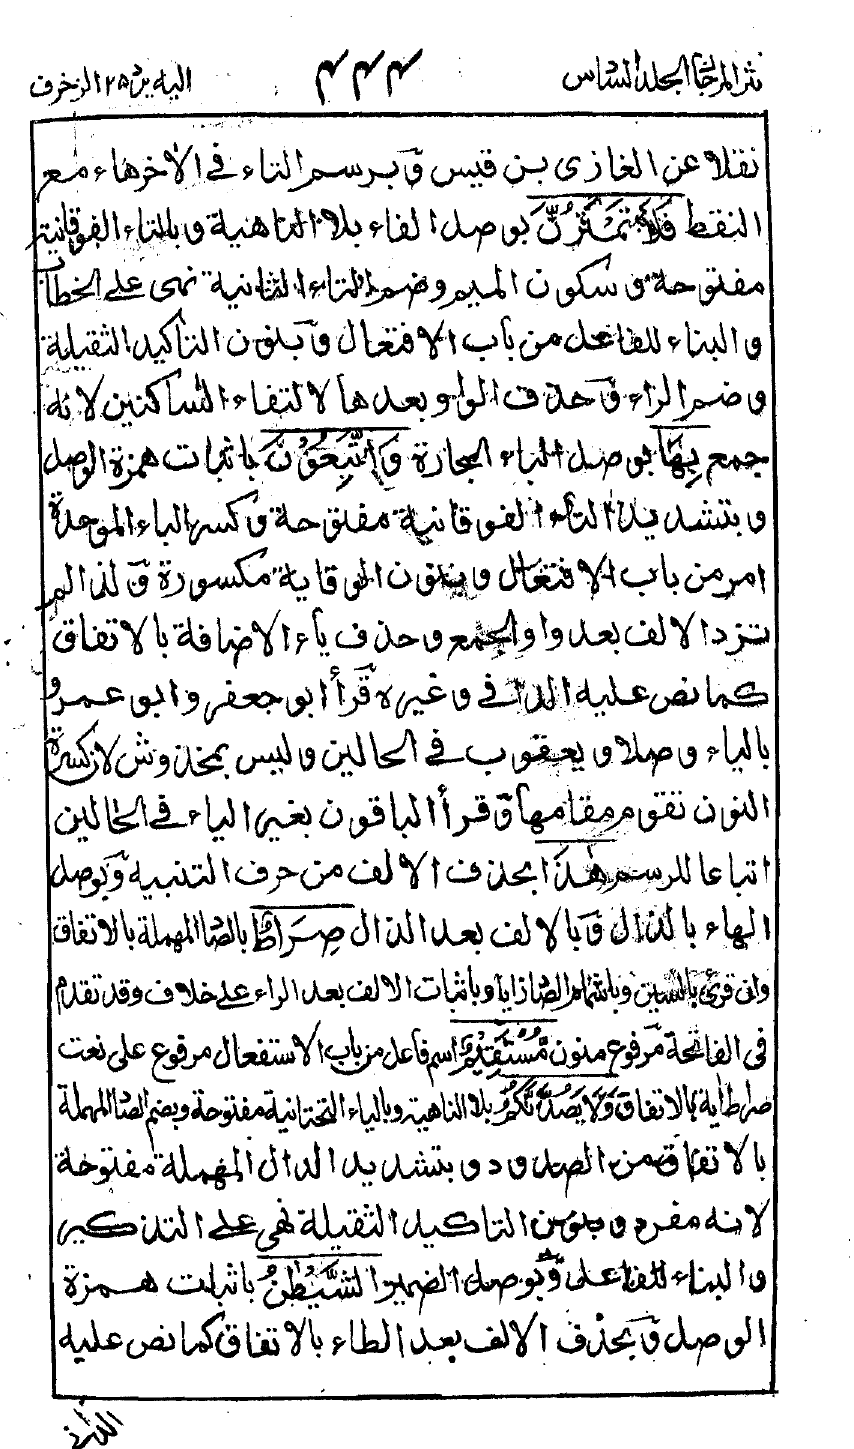 نثر المرجان المجلد السادس ۴۴۴ اليه يرد ۲۵ الزخرف
نقلا عن الغازى بن قيس وَبرسم التاء فى الاٰخرهاء مع
النقط فَلَا تَمْتَرُنَّ بوصل الفاء بلا الناهية وبالتاء الفوقانية
مفتوحة وسكون الميم وضم التاء الثانية نهى على الخطاب
والبناء للفاعل من باب الافتعال وَبنون التاكيد الثقيلة
وضم الراء وَحذف الواو بعدها لالتقاء الساكنين لانه
جمع بِهَا بوصل الباء الجارة وَاتَّبِعُوْنِ باثبات همزة الوصل
وبتشديد التاء الفوقانية مفتوحة وكسر الباء الموحدة
امر من باب الافتعال وبنون الوقاية مكسورة وَلذا لم
تزد الالف بعد واو الجمع وحذف ياء الاضافة بالاتفاق
كما نص عليه الدانى وغيره قرأ ابو جعفر وابو عمرو
بالياء وصلا ويعقوب فى الحالين وليس بمحذوش لان كسرة
النون تقوم مقامها وَقرأ الباقون بغير الياء فى الحالين
اتباعا للرسم هٰذَا بحذف الالف من حرف التنبيه وَبوصل
الهاء بالذال وَبالالف بعد الذال صِرَاطٌ بالصاد المهملة بالاتفاق
وان قرئ بالسين وباشمام الصاد زايا وباثبات الالف بعد الراء على خلاف وقد تقدم
فى الفاتحة مرفوع منون مُّسْتَقِيْمٌ اسم فاعل من باب الاستفعال مرفوع على نعت
صراط اية بالاتفاق وَلَا يَصُدَّنَّكُمُ بلا الناهية وبالياء التحتانية مفتوحة وبضم الصاد المهملة
بالاتفاق من الصدود وبتشديد الدال المهملة مفتوحة
لانه مفرد وبنون التاكيد الثقيلة نهى على التذكير
والبناء للفاعل وَبوصل الضمير الشَّيْطٰنُ باثبات همزة
الوصل وَبحذف الالف بعد الطاء بالاتفاق كما نص عليه
الدانى